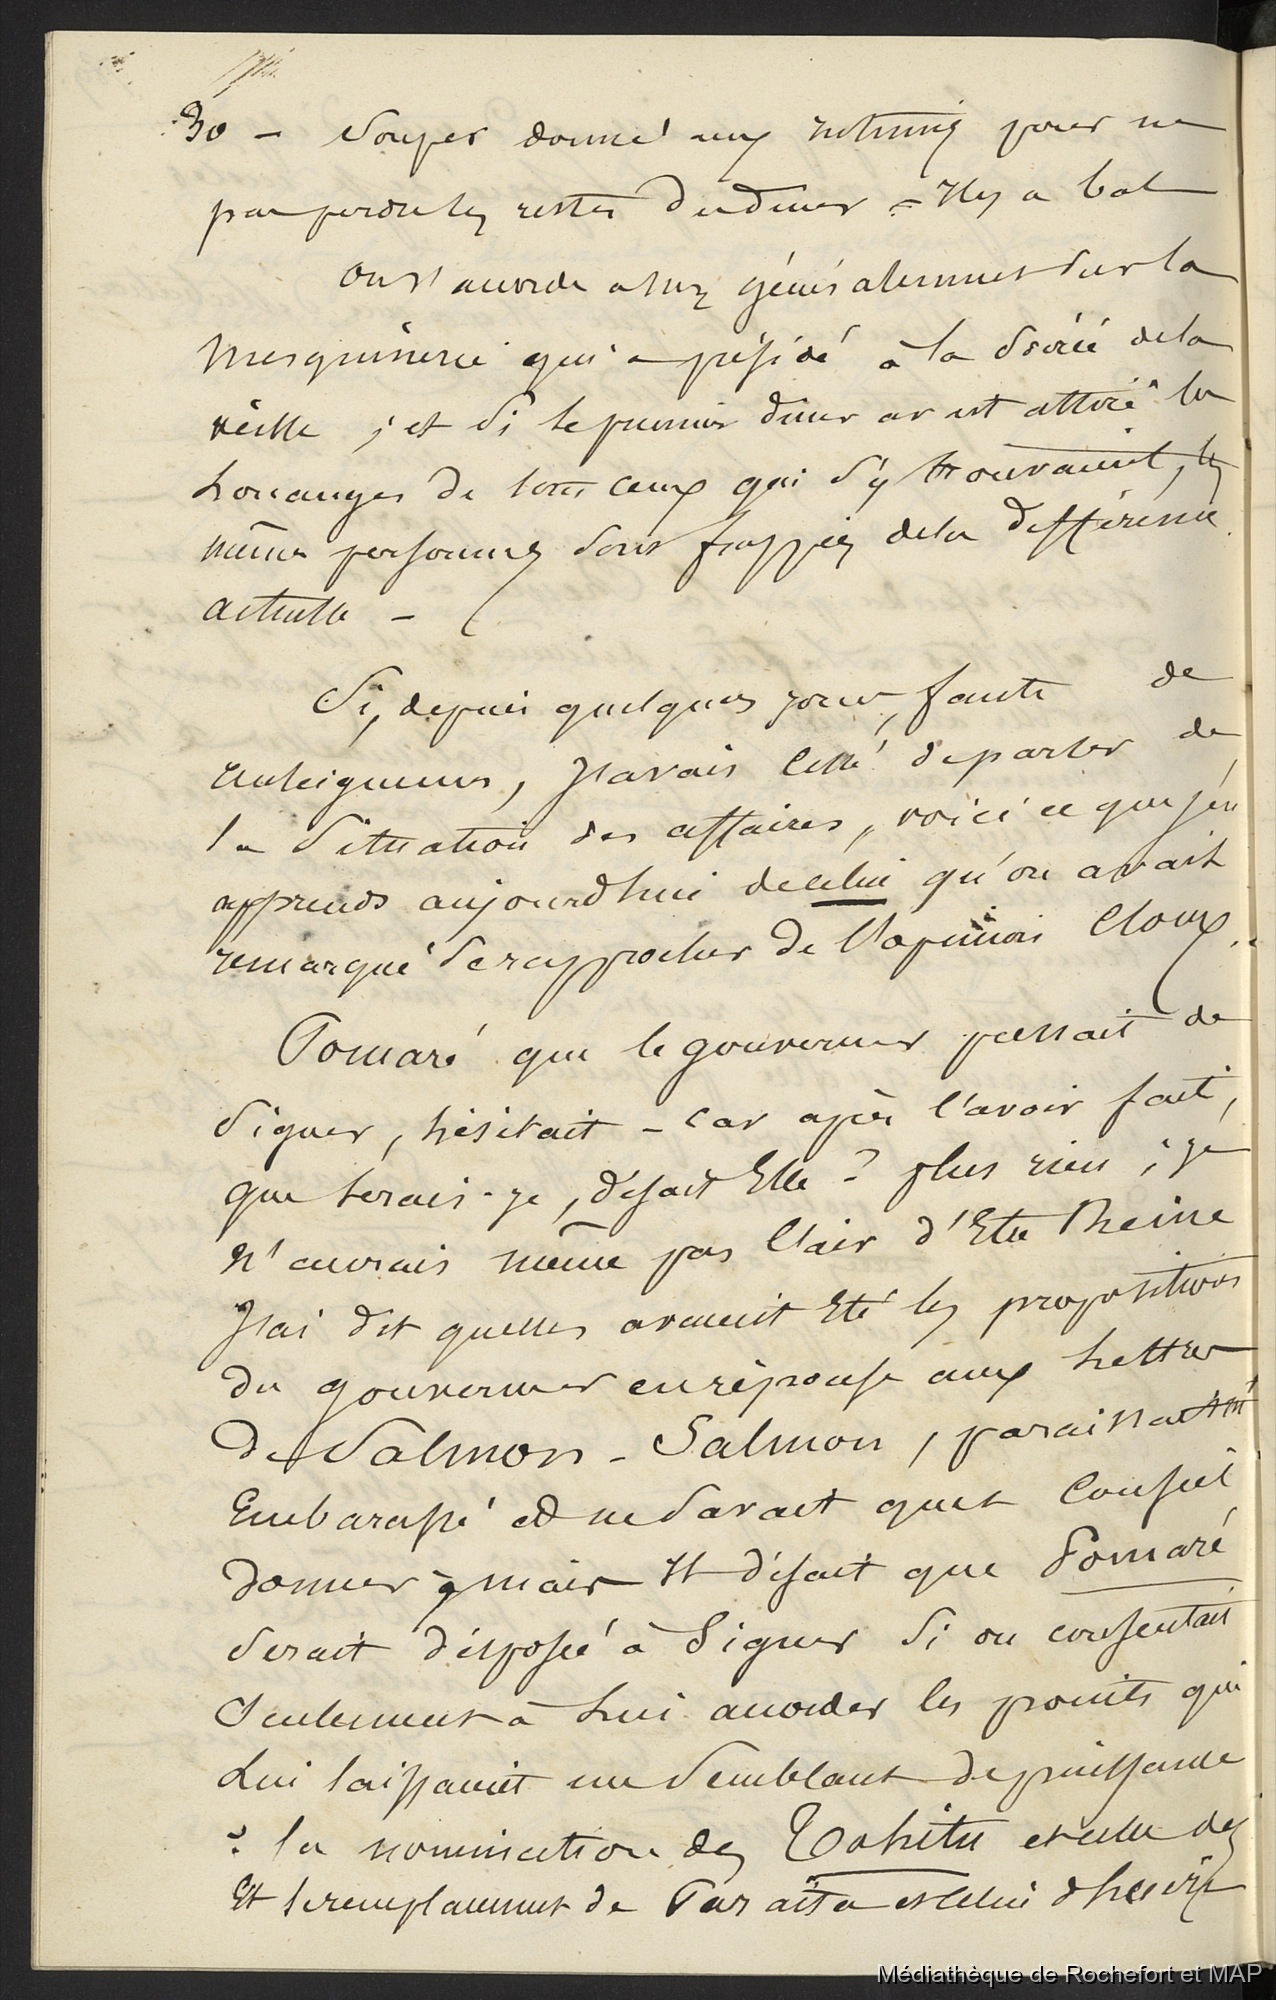 30 - Souper donné aux intimes pour ne
pas perdre les restes du diner = Il y a bal
On s'accorde assez généralement sur la
mesquinerie qui a présidé à la soirée de la
veille ; et si le premier diner avait attiré les
louanges de tous ceux qui s'y trouvaient, les
mêmes personnes sont frappées de la différence
actuelle -
Si, depuis quelques jours, faute de
renseignemens, j'avais cessé de parler de
la situation des affaires, voici ce que j'en
apprends aujourd'hui de celui qu'on avait
remarqué se rapprocher de l'opinion Cloux.
Pomaré que le gouverneur pressait de
signer, hésitait - car après l'avoir fait,
que serais-je, disait Elle ? plus rien ; je
n'aurais même pas l'air d'Etre Reine
J'ai dit quelles avaient Eté les propositions
du gouverneur en réponse aux lettres
de Salmon - Salmon, paraissait
Embarassé et ne savait quel Conseil
donner ; mais Il disait que Pomaré
serait disposée à Signer si on consentait
seulement à lui accorder les points qui
lui laissaient un semblant de puissance
: la nomination des Tohitu et celle des
Et le remplacement de Paraita et celui d'